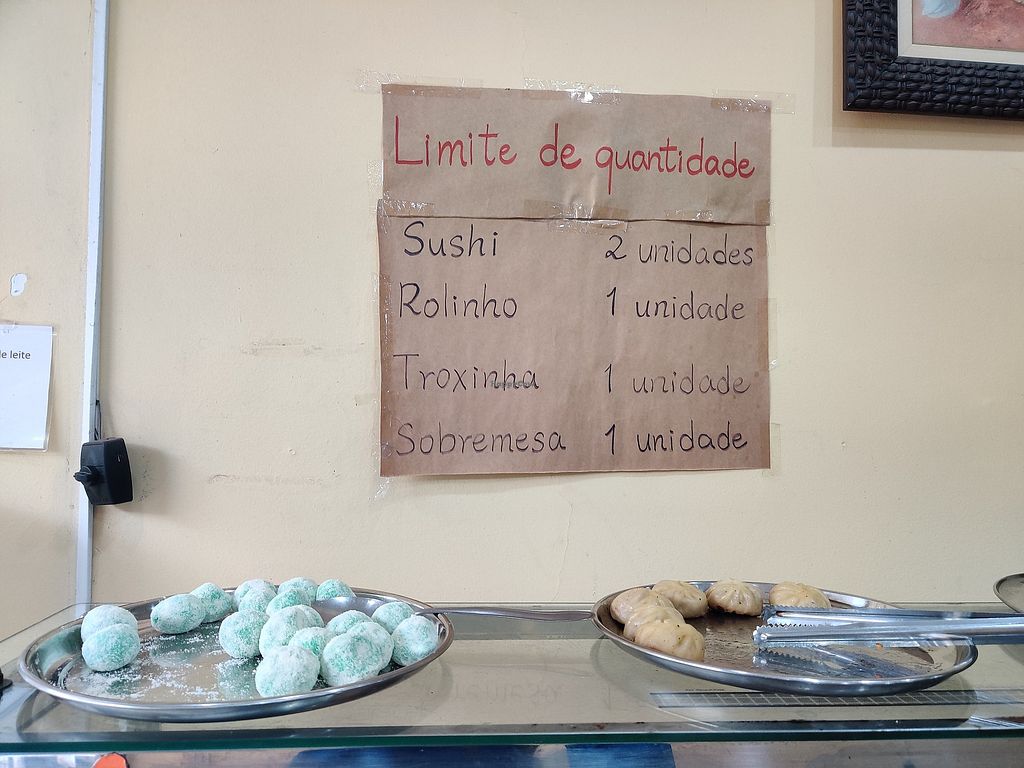 Limite de quantidade
Sushi 2 unidades
Rolinho 1 unidade
Troxinha 1 unidade
Sobremesa 1 unidade
e leite